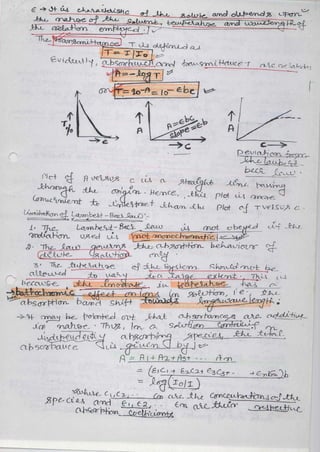 ε → It is characteristic of the solute and depends upon
the nature of the solvent, temperature and wavelength of
the radiation employed.
The Transmittance T is defined as
T = I/I₀
Evidently, absorbance and transmittance T are related
A = -log T
or T = 10^-A = 10^-εbc
T%
A
A
A=εbc
slope=εb
→ c
→ c
→ c
Deviation from
the Lambert
beer law.
Plot of A versus c is a straight line passing
through the origin. Hence, this plot is more
convenient to interpret than the plot of T versus c.
Limitation of Lambert-Beer law:-
1. The Lambert-Beer law is not obeyed if the
radiation used is not monochromatic
2. The law governs the absorption behaviour of
dilute solution only
3. The temperature of the system should not be
allowed to vary to a large extent. This is
because the increase in temperature has a
bathochromic effect on ions in solution, i.e. the
absorption band shift towards longer wave length.
→ It may be pointed out that absorbances are additive
in nature. Thus, in a solution containing
independently absorbing species the total
absorbance is given by
A = A1+A2+A3+... An
= (ε1C1+ε2C2+ε3C3.... +εnCn)b
= log(I0/I)
where C1, C2,... Cn are the concentrations of the
species and ε1, ε2,... εn are their respective
absorption coefficients